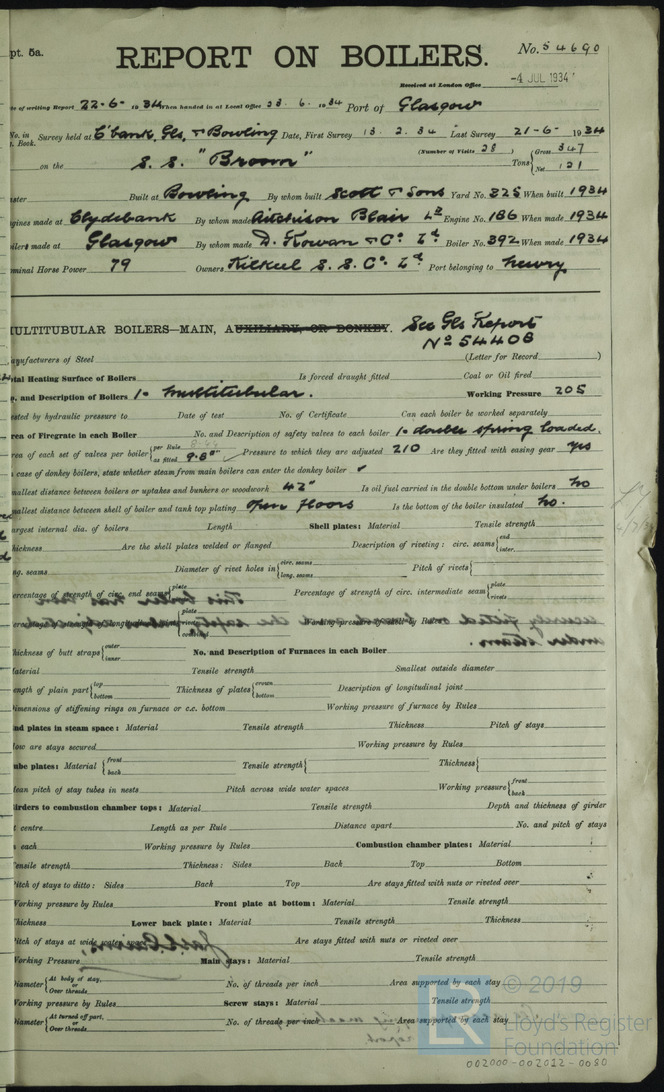 pt. 5a.
REPORT ON BOILERS.
No. 54690
Received at London Office -4 JUL 1934
te of writing Report 22-6-1934 When handed in at Local Office 23.6.1934 Port of Glasgow
No. in Survey held at C'bank, Gls, & Bowling Date, First Survey 13.2.34 Last Survey 21-6-1934
t. Book.
on the S.S. "Broom" (Number of Visits 28) Tons { Gross 347 Net 121
ster Built at Bowling By whom built Scott & Sons Yard No. 325 When built 1934
gines made at Clydebank By whom made Aitchison Blair Ld Engine No. 186 When made 1934
oilers made at Glasgow By whom made D. Rowan & Co Ld Boiler No. 392 When made 1934
minal Horse Power 79 Owners Kilkeel S.S. Co Ld Port belonging to Newry
ULTITUBULAR BOILERS—MAIN, AUXILIARY, OR DONKEY. See Gls Report
No 54408
anufacturers of Steel (Letter for Record )
tal Heating Surface of Boilers Is forced draught fitted Coal or Oil fired
o. and Description of Boilers 1- Multitubular. Working Pressure 205
ested by hydraulic pressure to Date of test No. of Certificate Can each boiler be worked separately
rea of Firegrate in each Boiler No. and Description of safety valves to each boiler 1- double spring loaded.
rea of each set of valves per boiler { per Rule as fitted 9.8" Pressure to which they are adjusted 210 Are they fitted with easing gear yes
case of donkey boilers, state whether steam from main boilers can enter the donkey boiler ✓
mallest distance between boilers or uptakes and bunkers or woodwork 42" Is oil fuel carried in the double bottom under boilers No
mallest distance between shell of boiler and tank top plating open floors Is the bottom of the boiler insulated No.
argest internal dia. of boilers Length Shell plates: Material Tensile strength
hickness Are the shell plates welded or flanged Description of riveting: circ. seams { end inter.
ng. seams Diameter of rivet holes in { circ. seams long. seams Pitch of rivets {
ercentage of strength of circ. end seams { plate Percentage of strength of circ. intermediate seam { plate rivets
hickness of butt straps { outer inner No. and Description of Furnaces in each Boiler
aterial Tensile strength Smallest outside diameter
ength of plain part { top bottom Thickness of plates { crown bottom Description of longitudinal joint
imensions of stiffening rings on furnace or c.c. bottom Working pressure of furnace by Rules
nd plates in steam space: Material Tensile strength Thickness Pitch of stays
ow are stays secured Working pressure by Rules
ube plates: Material { front back Tensile strength { Thickness {
ean pitch of stay tubes in nests Pitch across wide water spaces Working pressure { front back
irders to combustion chamber tops: Material Tensile strength Depth and thickness of girder
t centre Length as per Rule Distance apart No. and pitch of stays
each Working pressure by Rules Combustion chamber plates: Material
ensile strength Thickness: Sides Back Top Bottom
itch of stays to ditto: Sides Back Top Are stays fitted with nuts or riveted over
orking pressure by Rules Front plate at bottom: Material Tensile strength
hickness Lower back plate: Material Tensile strength Thickness
itch of stays at wide Are stays fitted with nuts or riveted over
orking Pressure Main stays: Material Tensile strength
iameter { At body of stay, or Over threads No. of threads per inch Area supported by each stay
orking pressure by Rules Screw stays: Material Tensile strength
iameter { At turned off part, or Over threads No. of threads per inch Area supported by each stay
LR © 2019
Lloyd's Register
Foundation
002000-002012-0080